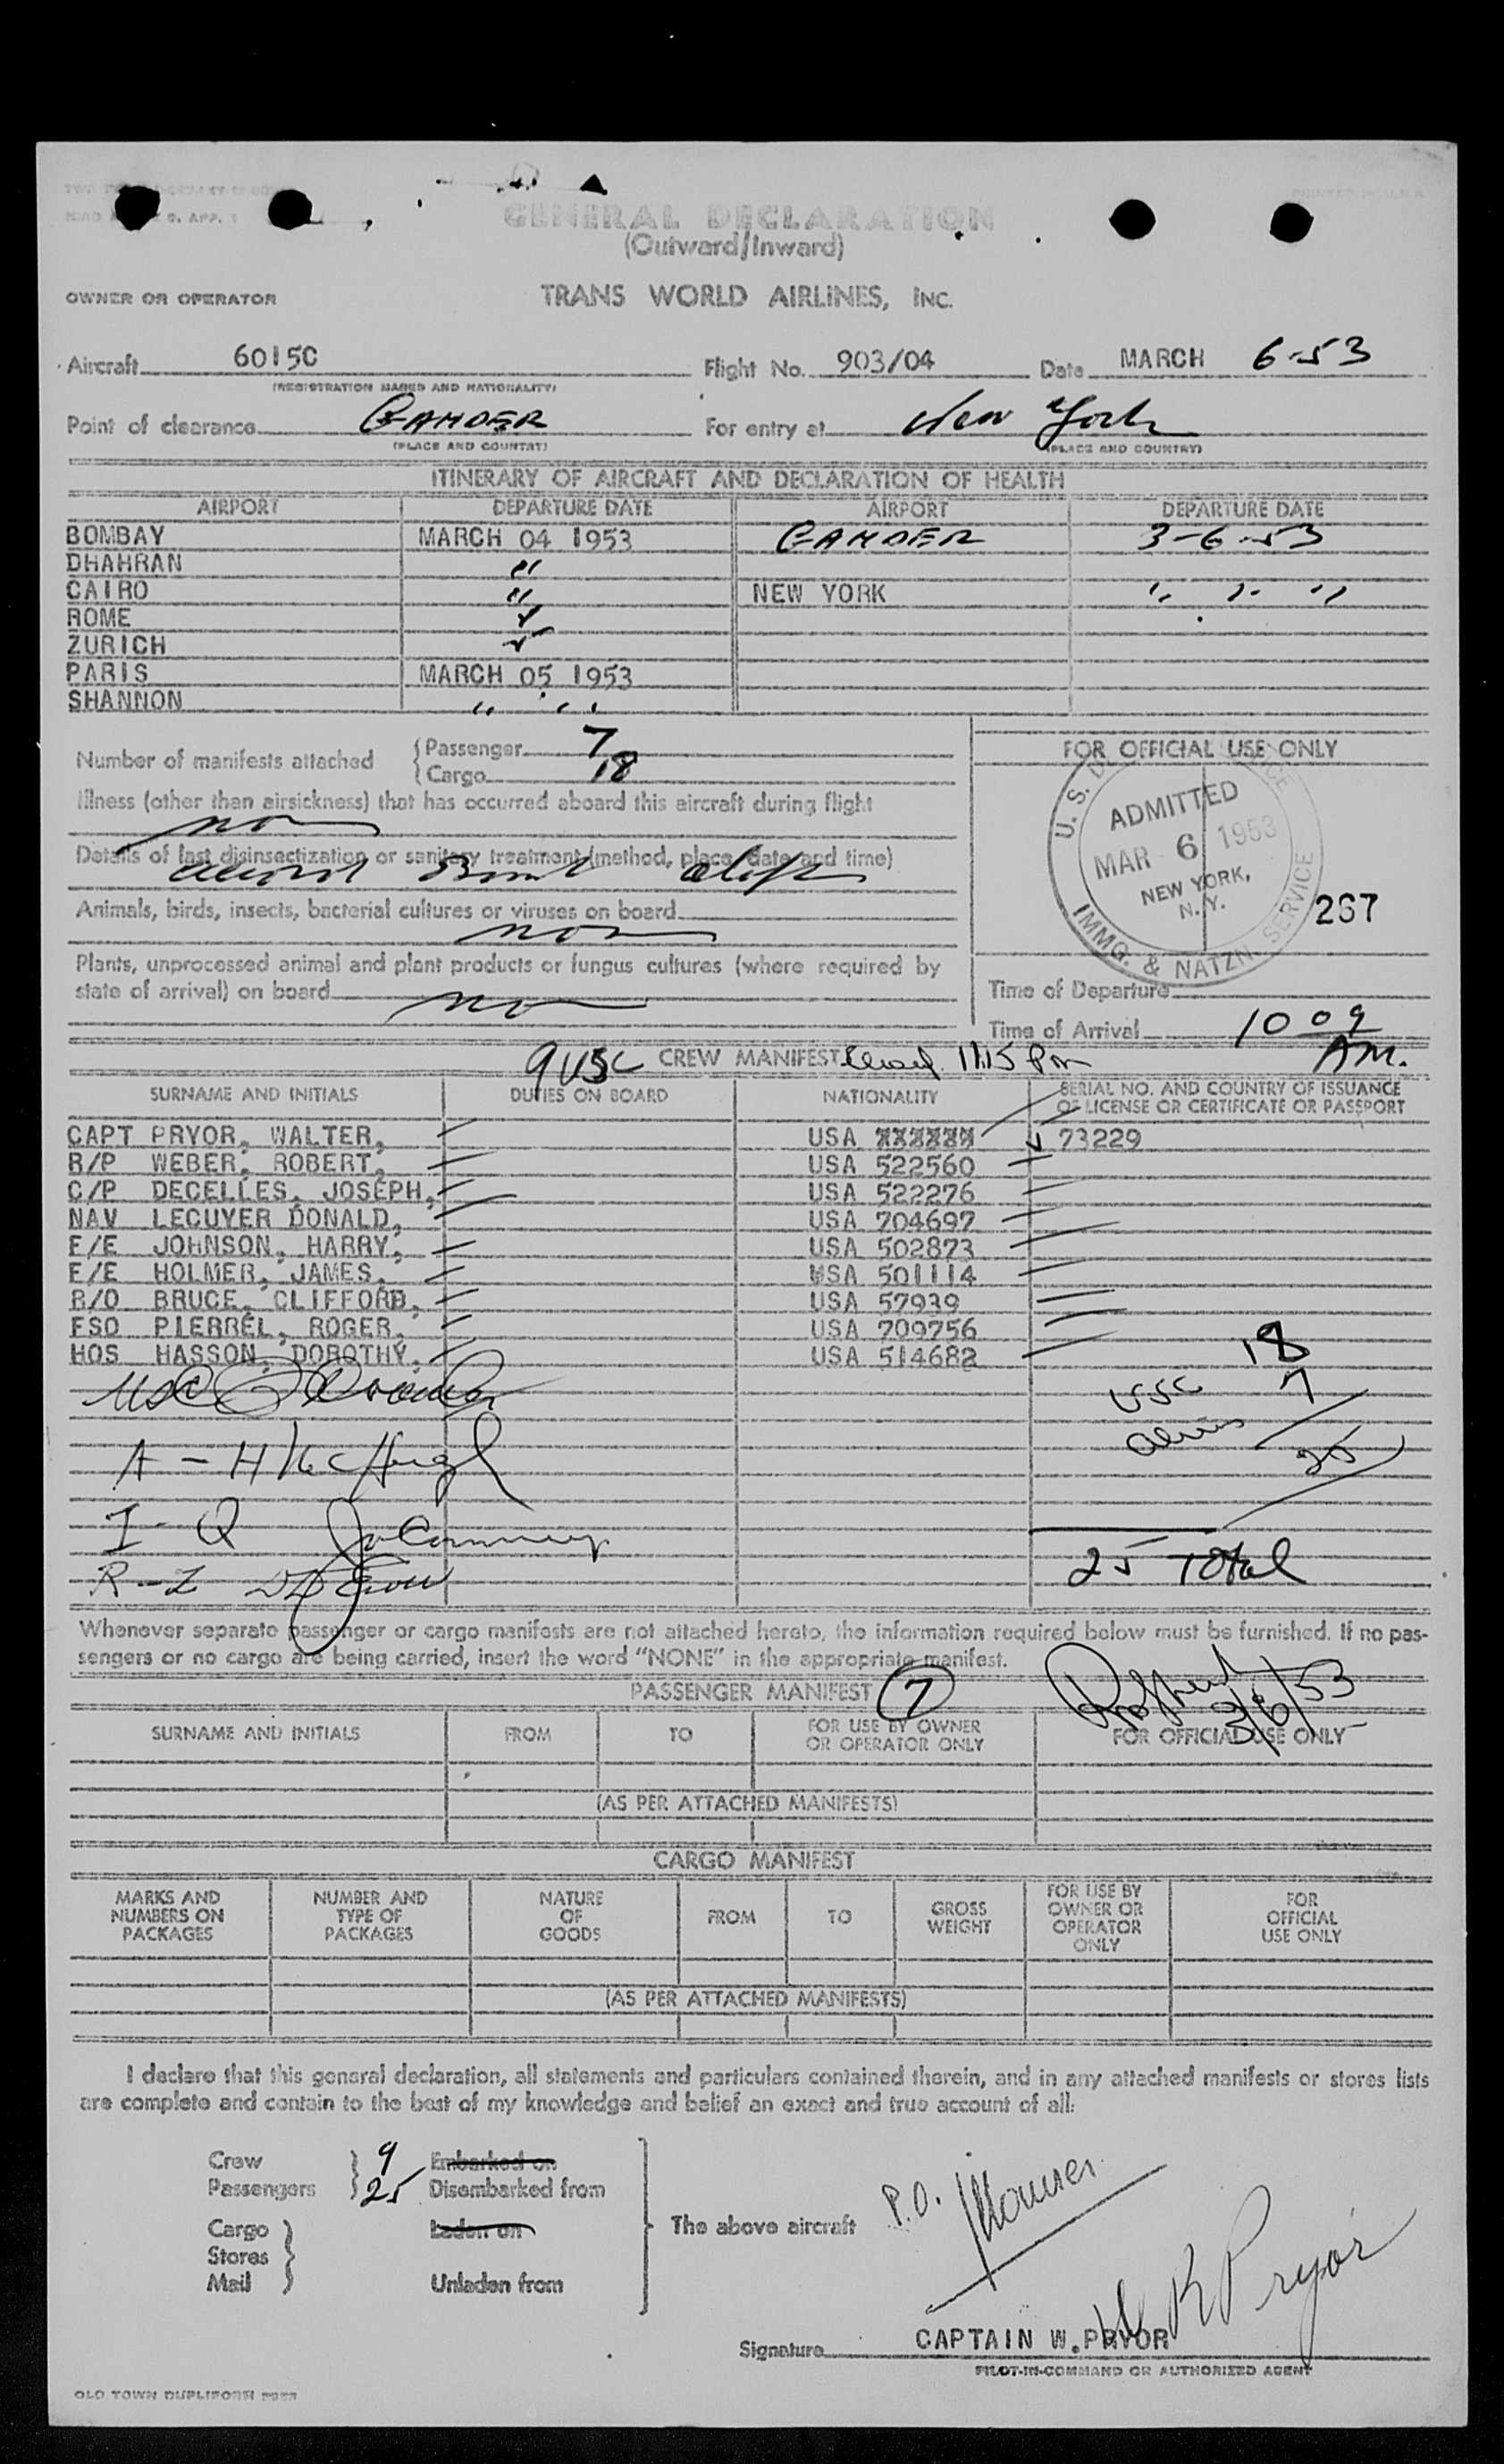 GENERAL DECLARATION
(Outward/Inward)
OWNER OR OPERATOR TRANS WORLD AIRLINES, INC.
Aircraft 6015C Flight No. 903/04 Date MARCH 6-53
(REGISTRATION MARKS AND NATIONALITY)
Point of clearance GANDER For entry at New York
(PLACE AND COUNTRY) (PLACE AND COUNTRY)
ITINERARY OF AIRCRAFT AND DECLARATION OF HEALTH
AIRPORT DEPARTURE DATE AIRPORT DEPARTURE DATE
BOMBAY MARCH 04 1953 GANDER 3-6-53
DHAHRAN "
CAIRO " NEW YORK " " "
ROME
ZURICH
PARIS MARCH 05 1953
SHANNON " "
Number of manifests attached { Passenger 7
Cargo 18
FOR OFFICIAL USE ONLY
Illness (other than airsickness) that has occurred aboard this aircraft during flight
Details of last disinsectization or sanitary treatment (method, place, date and time)
Animals, birds, insects, bacterial cultures or viruses on board
Plants, unprocessed animal and plant products or fungus cultures (where required by
state of arrival) on board
U.S.
ADMITTED
MAR 6 1953
NEW YORK,
N.Y.
IMMG. & NATZN. SERVICE
267
Time of Departure
Time of Arrival 10 09
AM.
9 USC CREW MANIFEST 11:15 Pm
SURNAME AND INITIALS DUTIES ON BOARD NATIONALITY SERIAL NO. AND COUNTRY OF ISSUANCE
OF LICENSE OR CERTIFICATE OR PASSPORT
CAPT PRYOR, WALTER, USA XXXXXX 73229
R/P WEBER, ROBERT, USA 522560
C/P DECELLES, JOSEPH, USA 522276
NAV LECUYER DONALD, USA 704697
F/E JOHNSON, HARRY, USA 502873
F/E HOLMER, JAMES, USA 501114
R/O BRUCE, CLIFFORD, USA 57939
FSO PIERREL, ROGER, USA 709756
HOS HASSON, DOROTHY, USA 514682
18
USC 7
A - H McHugh
25
I - Q
R - Z
25 Total
Whenever separate passenger or cargo manifests are not attached hereto, the information required below must be furnished. If no pas-
sengers or no cargo are being carried, insert the word "NONE" in the appropriate manifest.
PASSENGER MANIFEST 7
3/6/53
SURNAME AND INITIALS FROM TO FOR USE BY OWNER
OR OPERATOR ONLY FOR OFFICIAL USE ONLY
(AS PER ATTACHED MANIFESTS)
CARGO MANIFEST
MARKS AND
NUMBERS ON
PACKAGES
NUMBER AND
TYPE OF
PACKAGES
NATURE
OF
GOODS
FROM
TO
GROSS
WEIGHT
FOR USE BY
OWNER OR
OPERATOR
ONLY
FOR
OFFICIAL
USE ONLY
(AS PER ATTACHED MANIFESTS)
I declare that this general declaration, all statements and particulars contained therein, and in any attached manifests or stores lists
are complete and contain to the best of my knowledge and belief an exact and true account of all:
Crew 9 Embarked on
Passengers 25 Disembarked from
Cargo Laden on The above aircraft P.O.
Stores
Mail Unladen from
W R Pryor
Signature CAPTAIN W. PRYOR
PILOT-IN-COMMAND OR AUTHORIZED AGENT
OLD TOWN DUPLIFORM